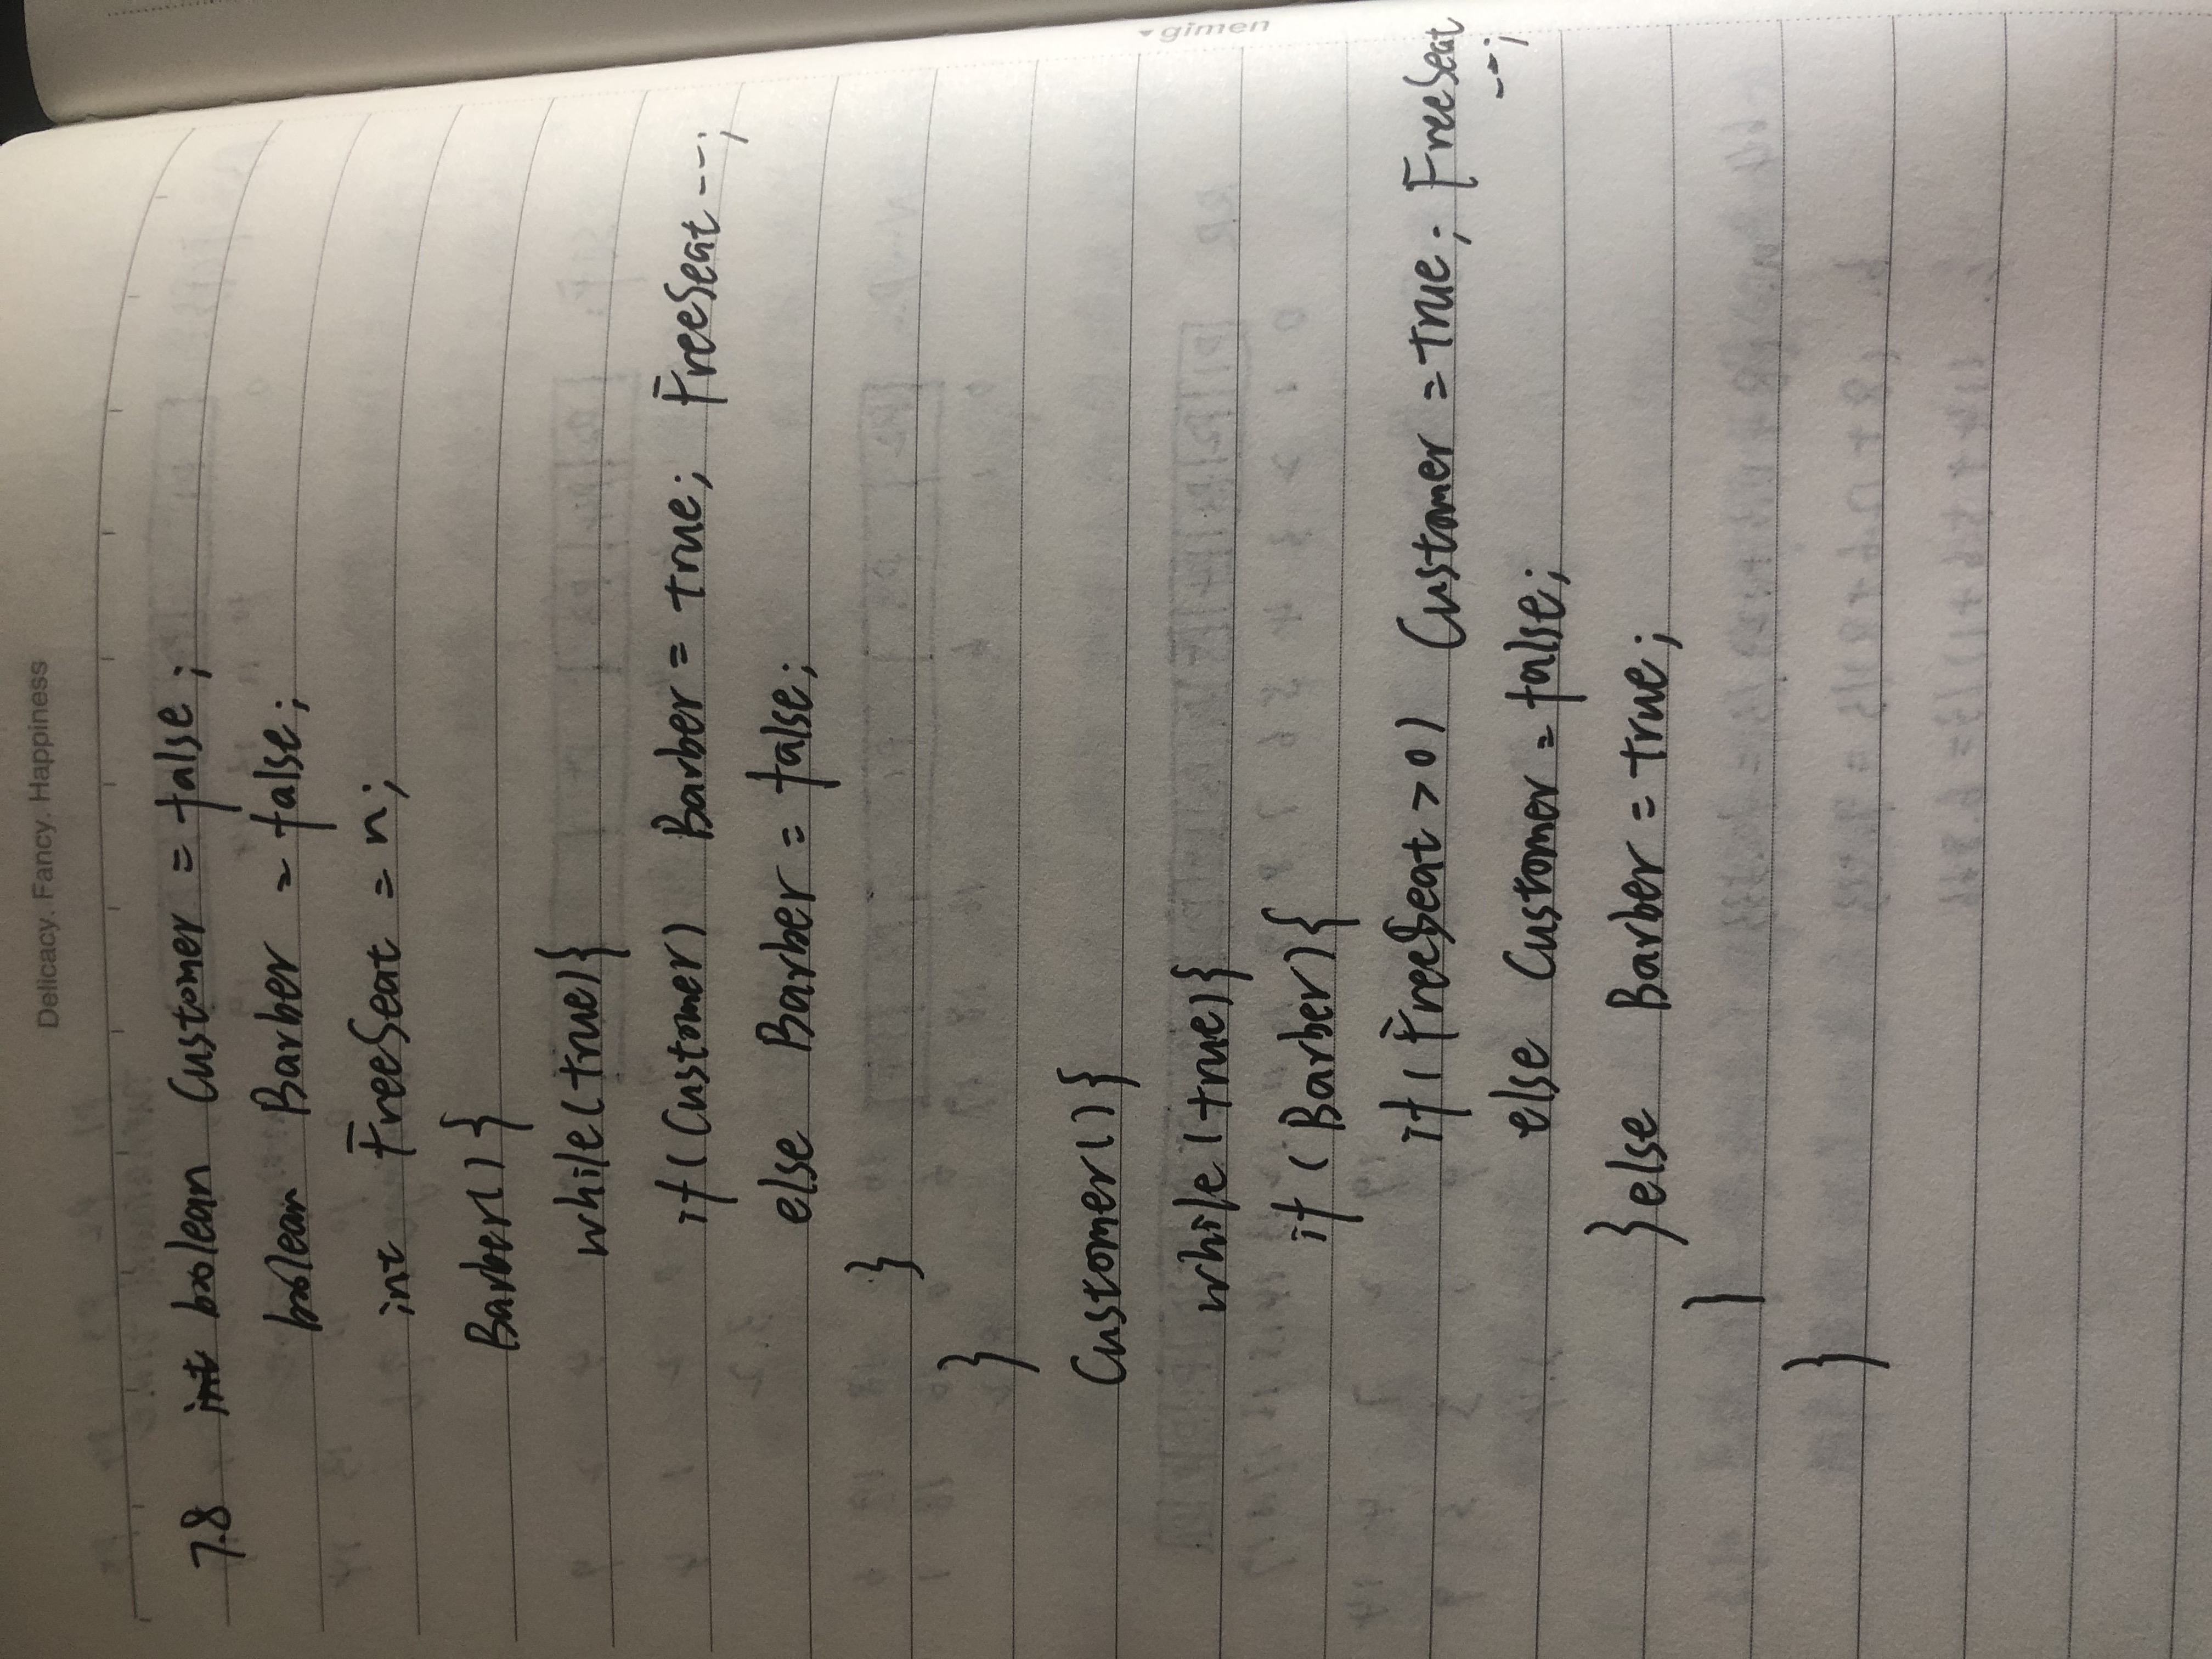 Delicacy. Fancy. Happiness
7.8 int boolean Customer = false;
boolean Barber = false;
int FreeSeat = n;
Barber() {
while(true){
if(Customer) Barber = true; FreeSeat--;
else Barber = false;
}
}
Customer(){
while(true){
if(Barber){
if(FreeSeat>0) Customer = true; FreeSeat
--;
else Customer = false;
}else Barber = true;
}
}
gimen